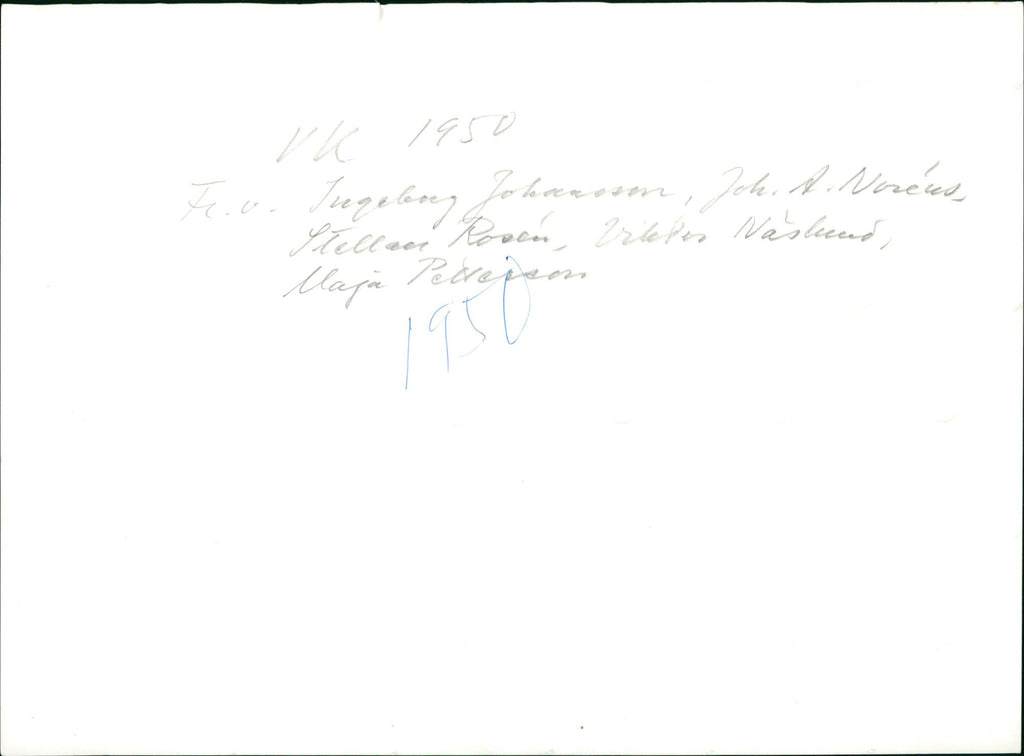 VK 1950
Fr.v. Ingeborg Johansson, Joh. A. Noréus,
Stellan Rosén, Viktor Näslund,
Maja Pettersson
1950